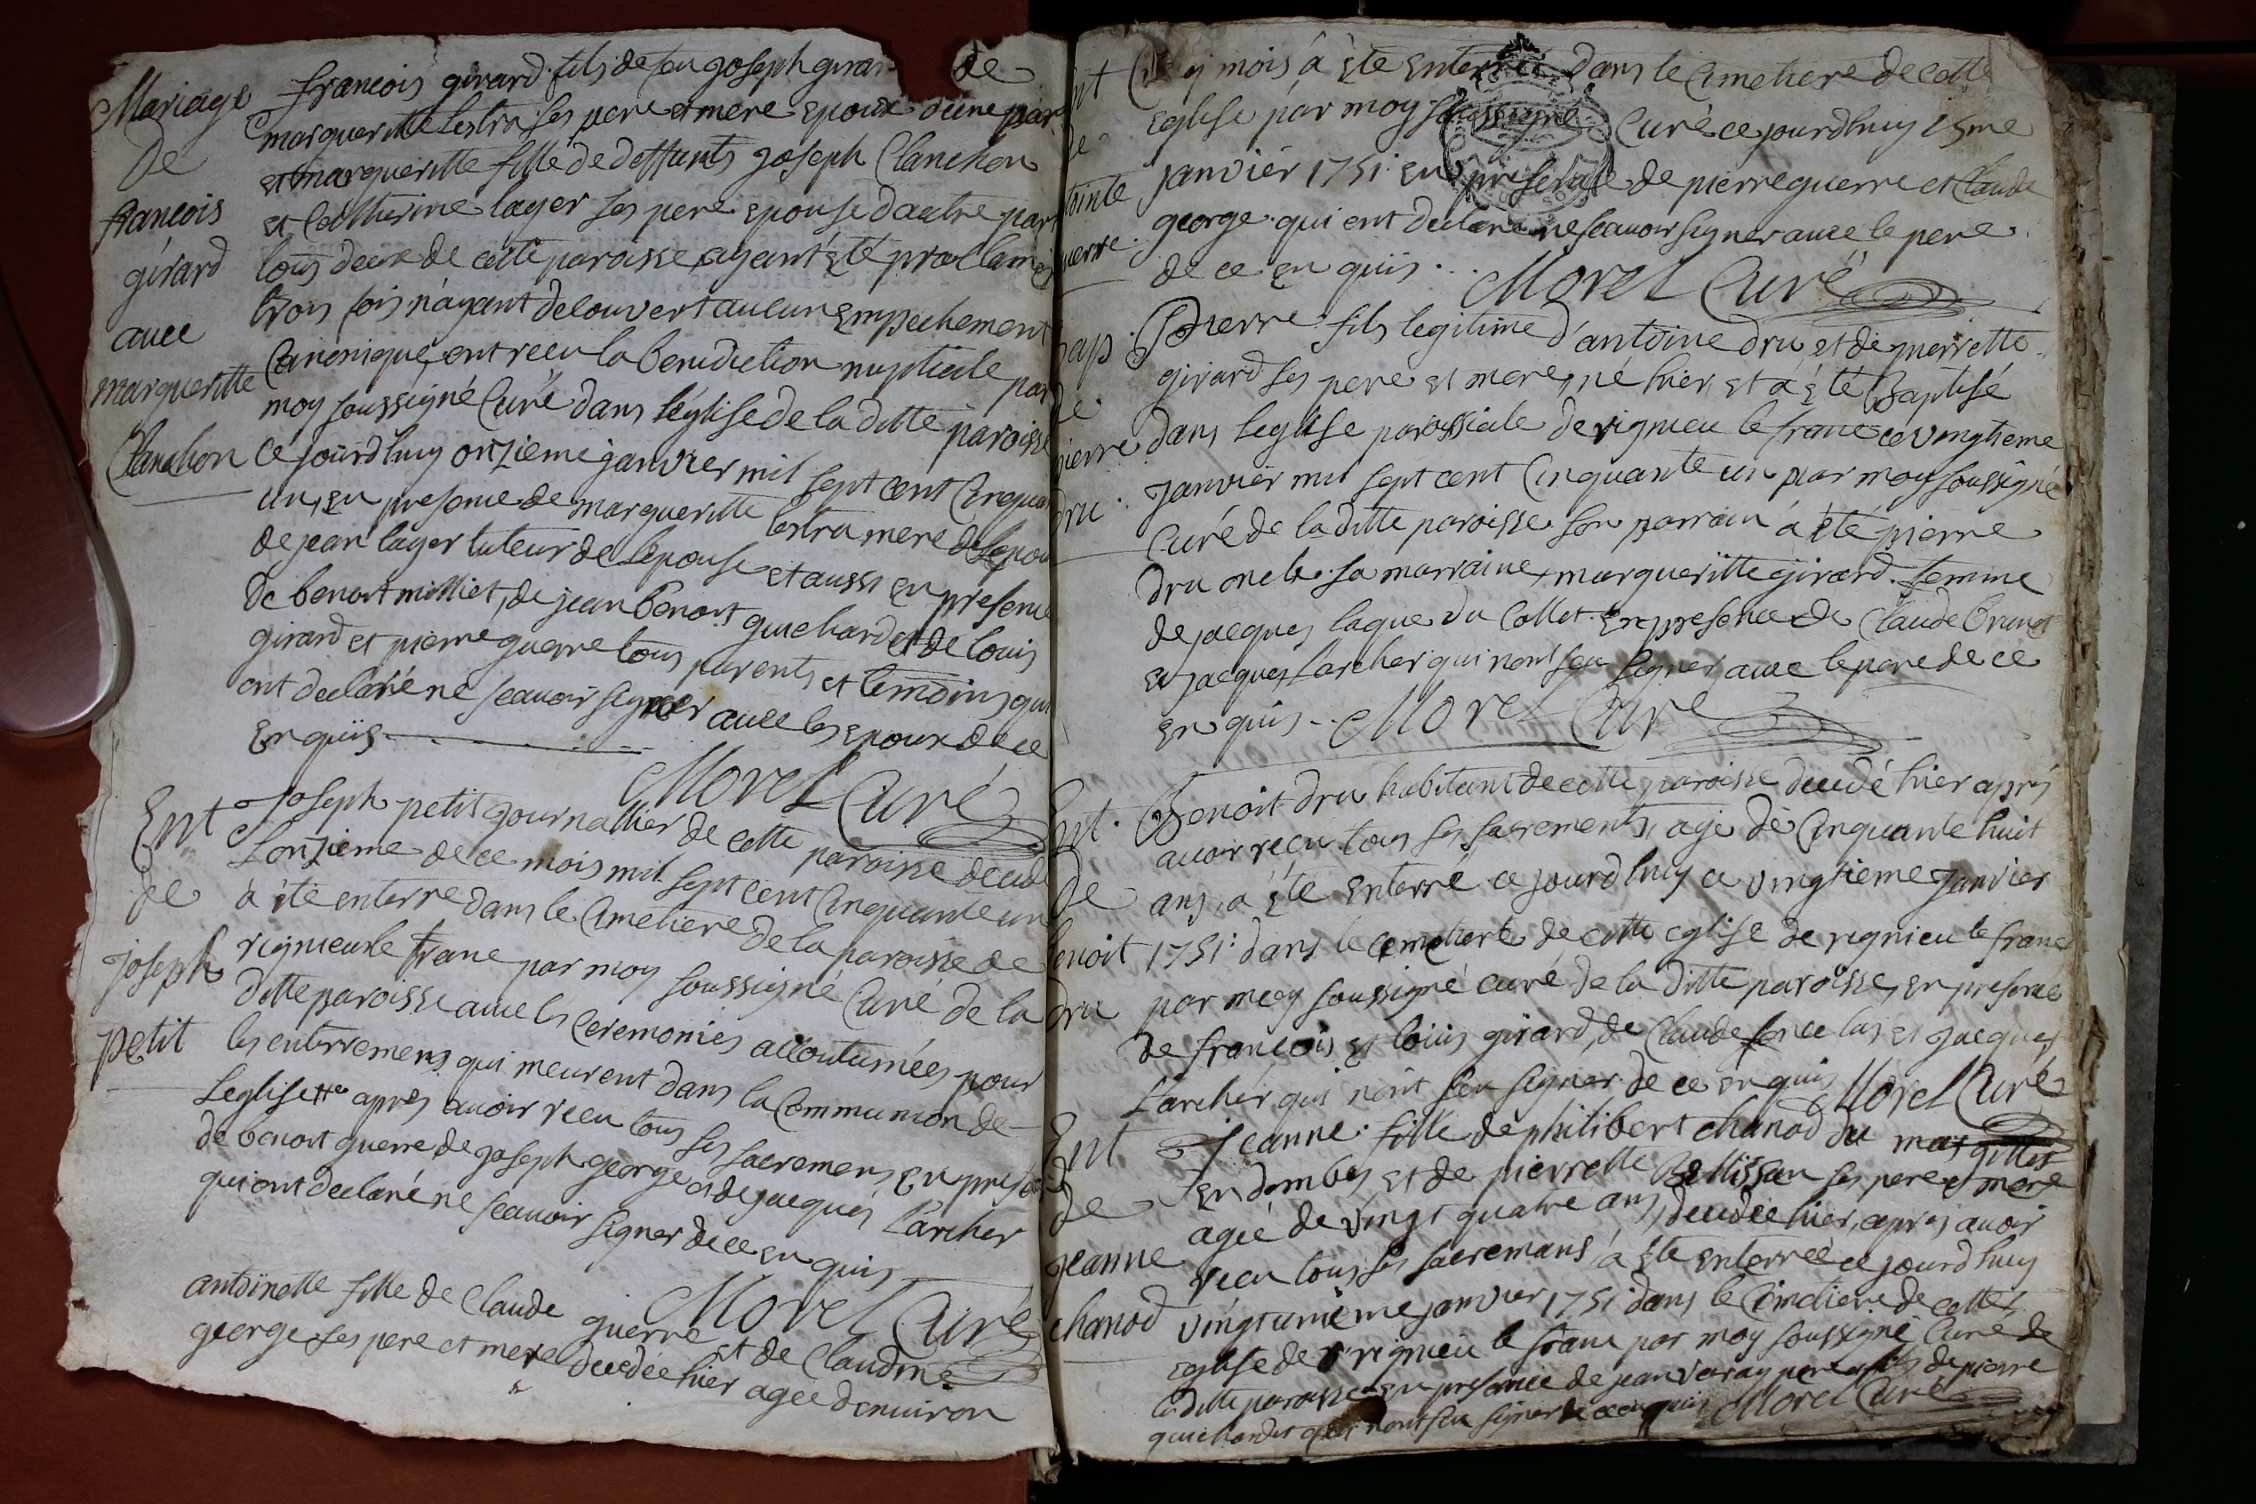 Mariage
De
francois
girard
avec
margueritte
Clanchon
francois girard fils de feu joseph girar de
margueritte lestra ses pere et mere epoux d'une par
et margueritte fille de deffunts joseph Clanchon
et Catherine layer ses pere epouse d'autre par
tous deux de cette paroisse, ayant été proclamés
trois fois n'ayant decouvert aucun empechement
Canonique, ont recu la benediction nuptiale par
moy soussigné Curé dans l'église de la ditte paroisse
ce jourd'huy onzieme janvier mil sept cent Cinquan
un, en presence de margueritte lestra mere de l'epou
de jean layer tuteur de l'epouse et aussi en presence
de benoit milliet, de jean benoit guichard et de louis
girard et pierre guerre tous parents et temoins qui
ont declaré ne scavoir signer avec les epoux de ce
enquis
Morel Curé
Ent
de
joseph
petit
Joseph petit journallier de cette paroisse decedé
l'onzieme de ce mois mil sept cent Cinquante un
à été enterre dans le Cimetiere de la paroisse de
rignieu le franc par moy soussigné Curé de la
ditte paroisse avec les Ceremonies accoutumées pour
les enterremens qui meurent dans la Communion de
l'eglise apres avoir recu tous ses sacremens en prese
de benoit guerre de joseph george et de jacques Larcher
qui ont declaré ne scavoir signer de ce enquis
Morel Curé
antoinette fille de Claude guerre et de Claudine
george ses pere et mere decedée hier agée d'environ
mois à été enterrée dans le Cimetiere de cette
Eglise par moy soussigné Curé ce jourd'huy 15me
janvier 1751: en presence de pierre guerre et Claude
george qui ont declaré ne scavoir signer avec le pere
de ce enquis...
Morel Curé
bap.
de
pierre
dru.
Pierre fils legitime d'antoine dru et de pierrette
girard ses pere et mere, né hier et à été Baptisé
dans leglise paroissiale de rignieu le franc ce vingtieme
janvier mil sept cent Cinquante un par moy soussigné
Curé de la ditte paroisse son parrain à été pierre
dru oncle sa marraine margueritte girard femme
de jacques laque du Collet. En presence de Claude brunet
et jacques Larcher qui n'ont seu signer avec le pere de ce
enquis... Morel Curé
Ent.
de
benoit
dru
Benoit dru habitant de cette paroisse decedé hier apres
avoir recu tous ses sacrements, agé de Cinquante huit
ans, à été enterré ce jourd'huy ce vingtieme janvier
1751: dans le cemetiere de cette eglise de rignieu le franc
par moy soussigné curé de la ditte paroisse, en presence
de francois et louis girard, de Claude et jacques
Larcher qui n'ont seu signer de ce enquis Morel Curé
Ent
de
jeanne
chanod
Jeanne fille de philibert chanod du
en dombes et de pierrette Bellissan ses pere et mere
agée de vingt quatre ans, decedée hier, apres avoir
recu tous ses sacremans à été enterrée ce jourd'huy
vingtunieme janvier 1751: dans le Cimetiere de cette
eglise de rignieu le franc par moy soussigné Curé de
la ditte paroisse en presence de jean varay pere et fils de pierre
guichardet qui n'ont seu signer de ce enquis Morel Curé